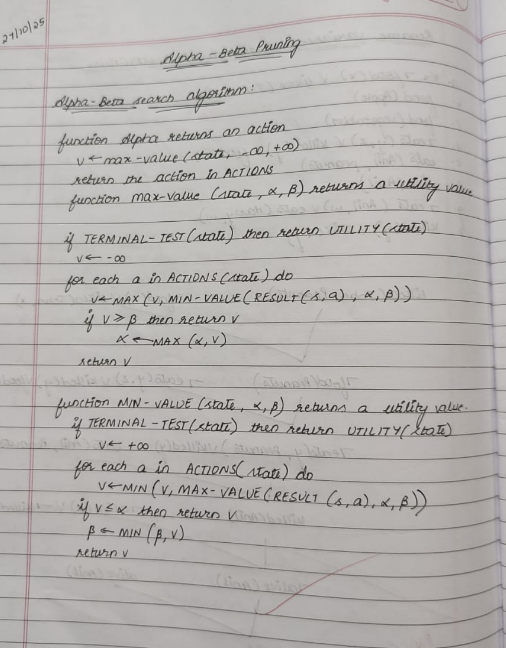 27/10/25
Alpha-Beta Pruning
Alpha-Beta search algorithm:
function Alpha returns an action
v ← max-value (state, -∞, +∞)
return the action in ACTIONS
function max-value (state, α, β) returns a utility value
if TERMINAL-TEST (state) then return UTILITY (state)
v ← -∞
for each a in ACTIONS (state) do
v ← MAX (v, MIN-VALUE (RESULT (s,a), α, β))
if v ≥ β then return v
α ← MAX (α, v)
return v
function MIN-VALUE (state, α, β) returns a utility value.
if TERMINAL-TEST (state) then return UTILITY (state)
v ← +∞
for each a in ACTIONS (state) do
v ← MIN (v, MAX-VALUE (RESULT (s, a), α, β))
if v ≤ α then return v
β ← MIN (β, v)
return v